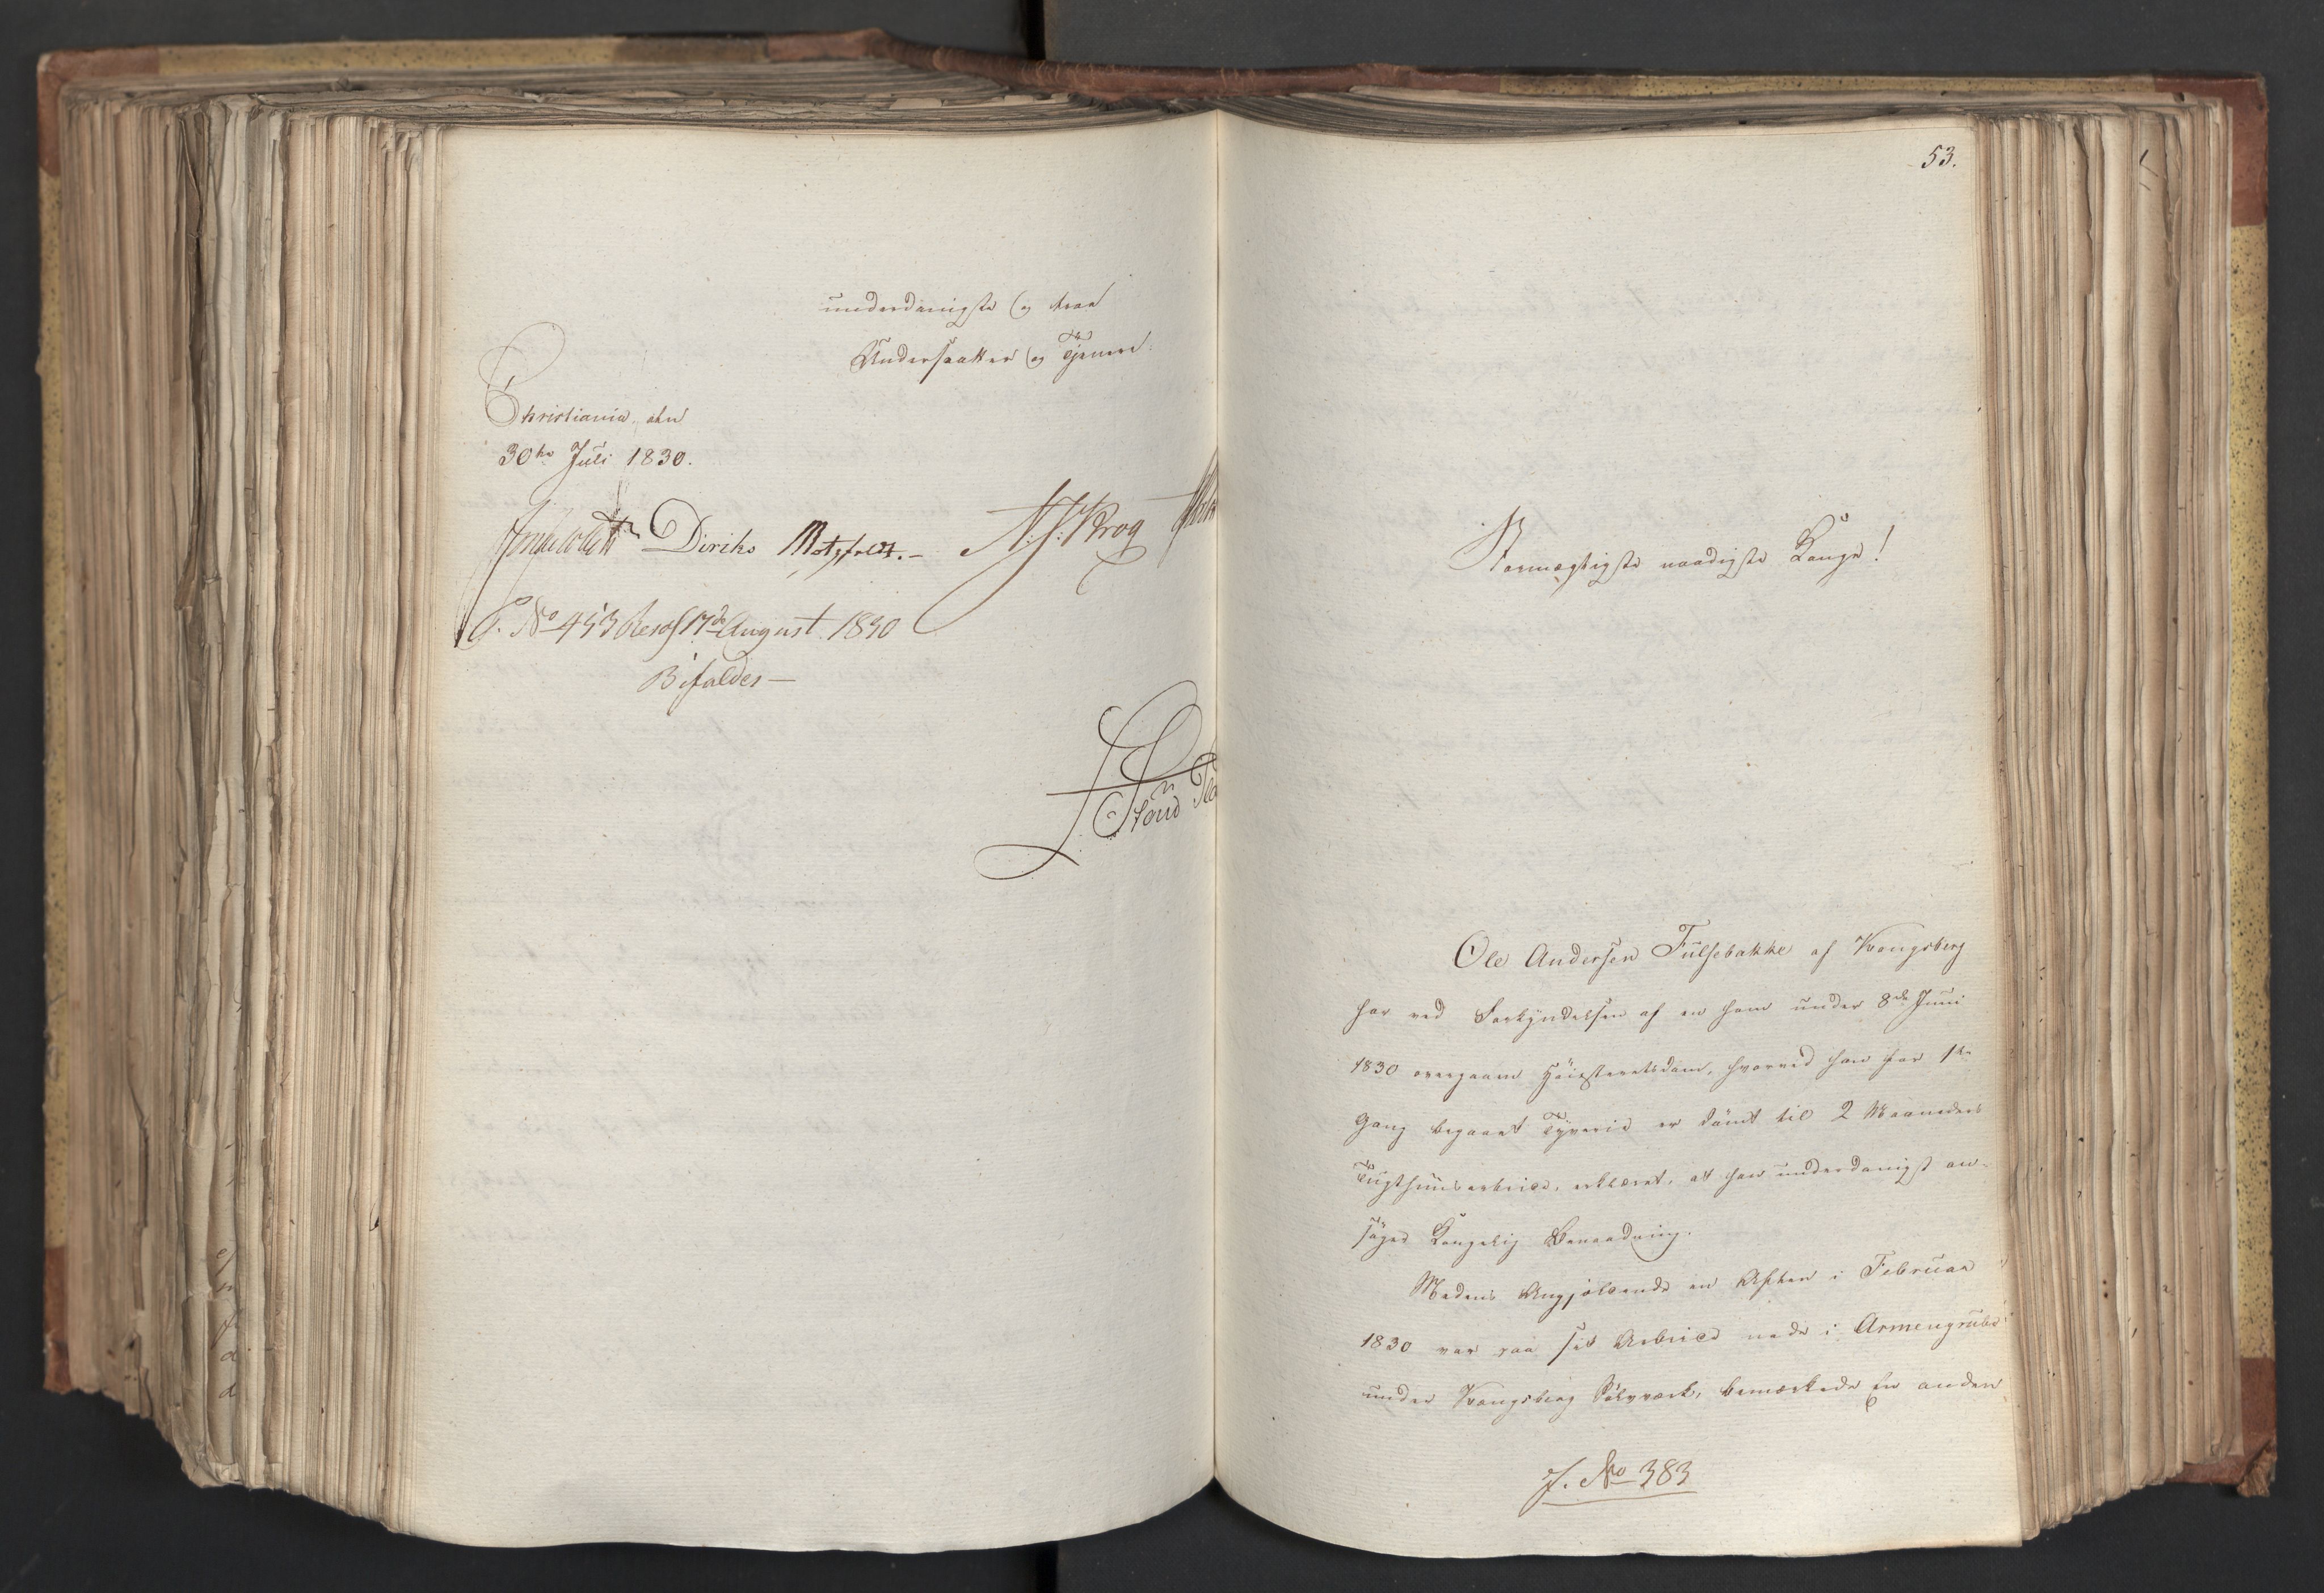 underdanigste og troe
Undersaatter og Tjenere.
Christiania, den
30te Juli 1830.
Diriks Motzfeldt. N. J. Krog
S. No 453 Resol 17de August 1830
Bifaldes
53.
Stormægtigste naadigste Konge!
Ole Andersen Fulsebakke af Kongsberg
har ved Forkyndelsen af en ham under 8de Juni
1830 overgaaen Høiesteretsdom, hvorved han for 1ste
Gang begaaet Tyverie er dömt til 2 Maaneders
Tugthuusarbeide, erklæret, at han underdanigst an-
söger Kongelig Benaadning.
Medens Angjeldende en Aften i Februar
1830 var paa sit Arbeide nede i Armengrube
under Kongsberg Sölvværk, bemærkede En anden
J. No 383